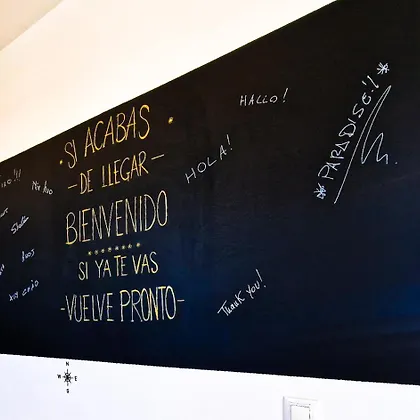 SI ACABAS
- DE LLEGAR -
BIENVENIDO
SI YA TE VAS
- VUELVE PRONTO -
HALLO!
HOLA!
PARADISE!!
Thank you!
N
W E
S